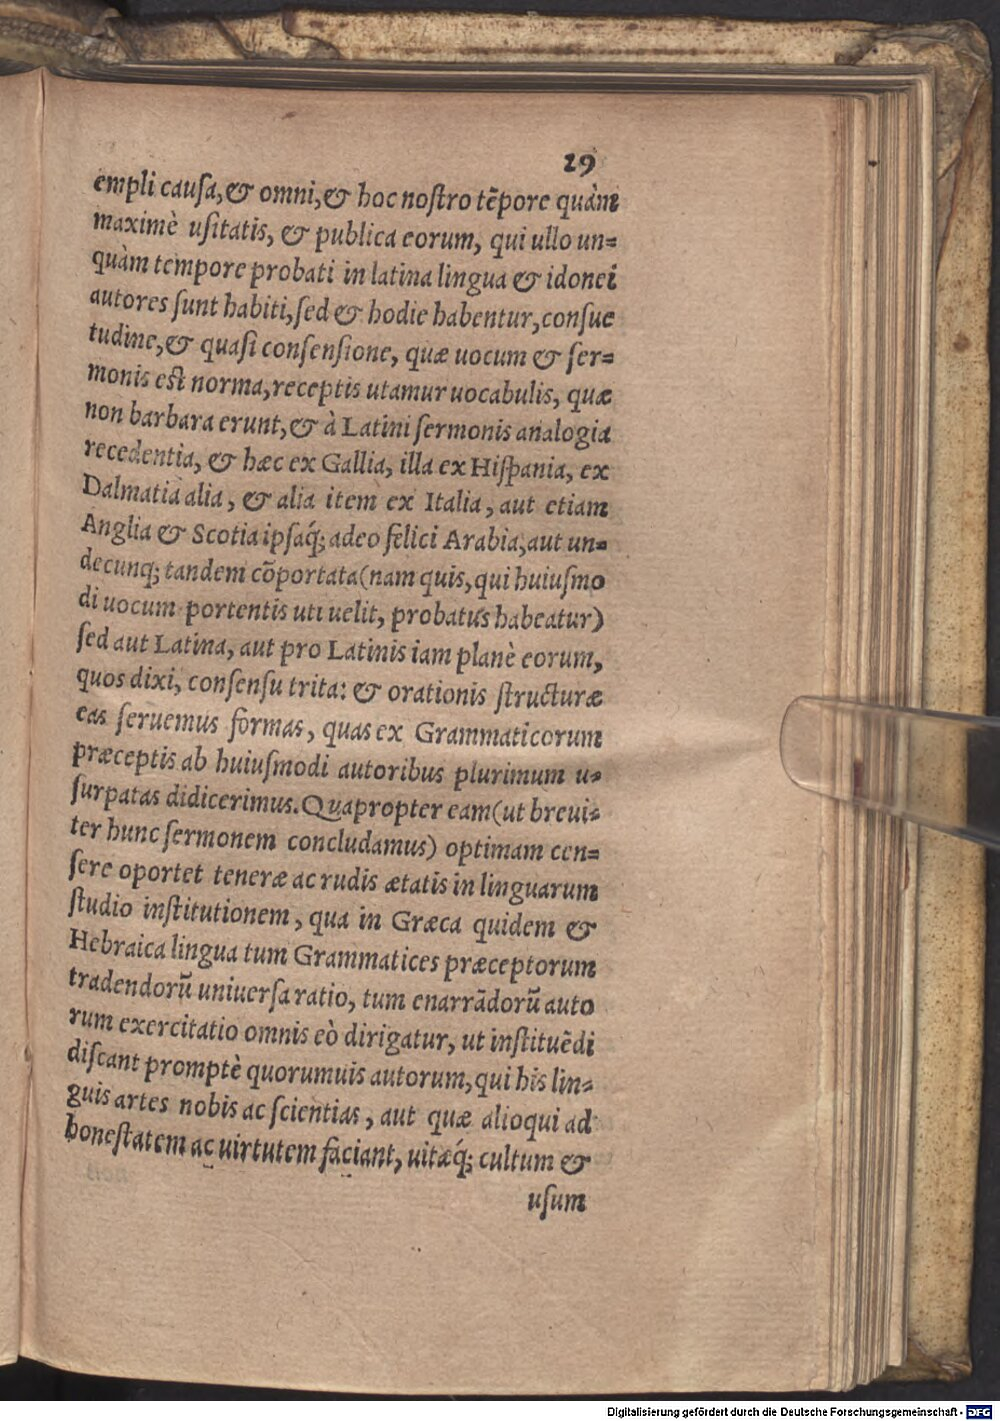 19
empli causa, & omni, & hoc nostro tẽpore quàm
maximè usitatis, & publica eorum, qui ullo un=
quàm tempore probati in latina lingua & idonei
autores sunt habiti, sed & hodie habentur, consue
tudine, & quasi consensione, quæ uocum & ser=
monis est norma, receptis utamur uocabulis, quæ
non barbara erunt, & à Latini sermonis analogia
recedentia, & hæc ex Gallia, illa ex Hispania, ex
Dalmatia alia, & alia item ex Italia, aut etiam
Anglia & Scotia ipsaq́; adeo felici Arabia, aut un=
decunq; tandem cõportata (nam quis, qui huiusmo
di uocum portentis uti uelit, probatus habeatur)
sed aut Latina, aut pro Latinis iam planè eorum,
quos dixi, consensu trita: & orationis structuræ
eas seruemus formas, quas ex Grammaticorum
præceptis ab huiusmodi autoribus plurimum u=
surpatas didicerimus. Quapropter eam (ut breui=
ter hunc sermonem concludamus) optimam cen=
sere oportet teneræ ac rudis ætatis in linguarum
studio institutionem, qua in Græca quidem &
Hebraica lingua tum Grammatices præceptorum
tradendorũ uniuersa ratio, tum enarrãdorũ auto
rum exercitatio omnis eò dirigatur, ut instituẽdi
discant promptè quorumuis autorum, qui his lin=
guis artes nobis ac scientias, aut quæ alioqui ad
honestatem ac uirtutem faciant, uitæq́; cultum &
usum
Digitalisierung gefördert durch die Deutsche Forschungsgemeinschaft - DFG